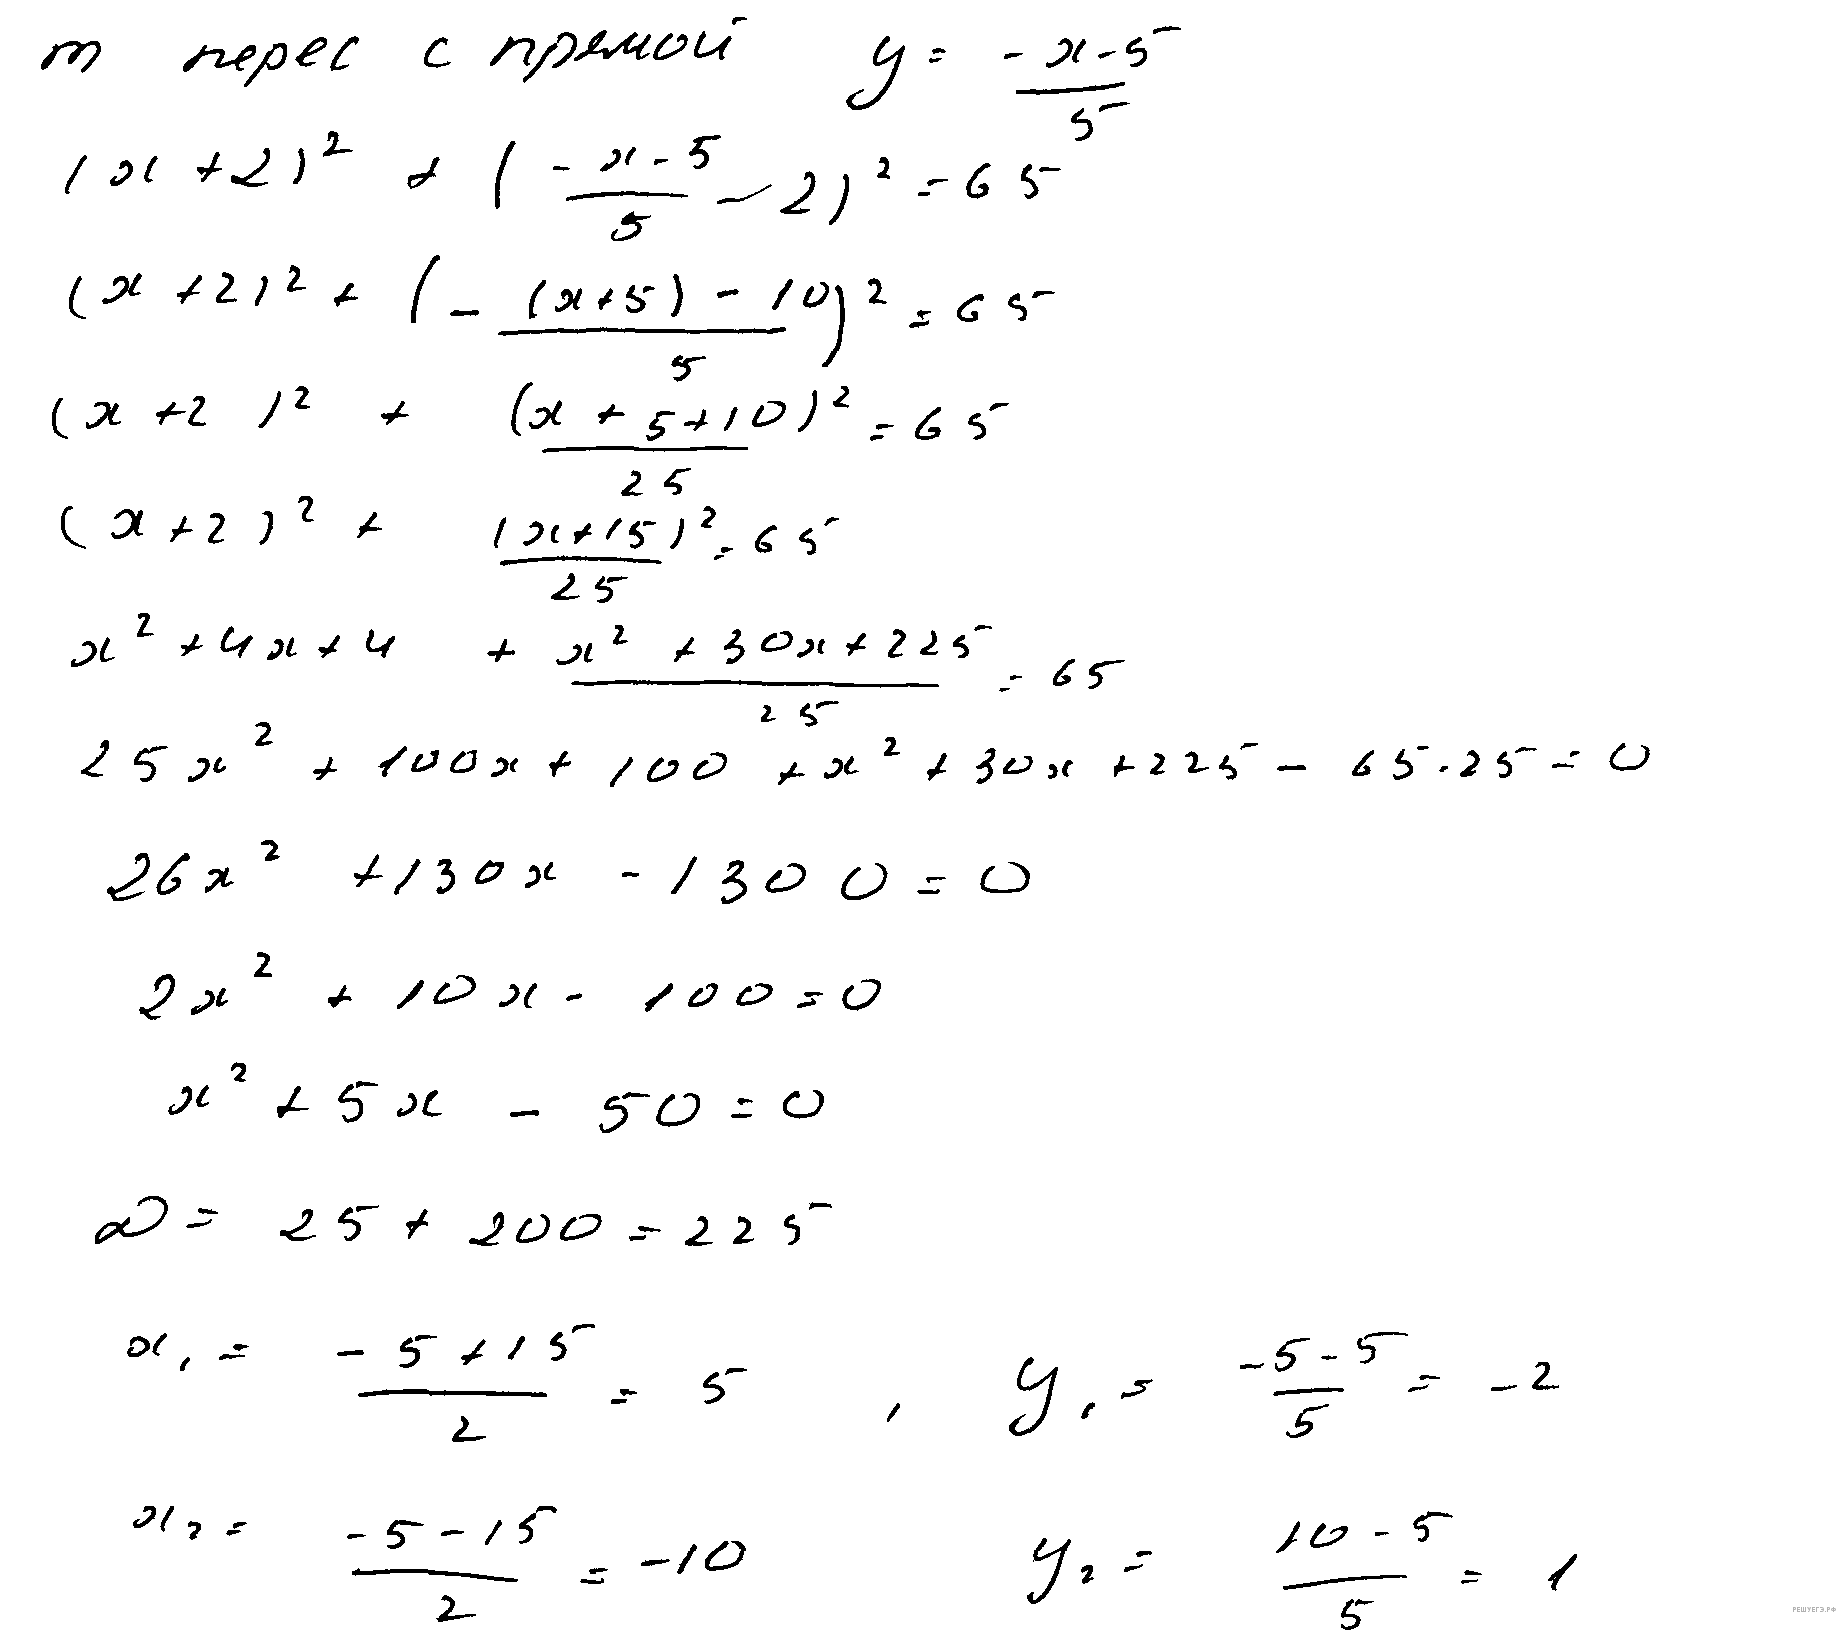 т перес с прямой y = (-x-5)/5
(x+2)² + ((-x-5)/5 - 2)² = 65
(x+2)² + (-((x+5)-10)/5)² = 65
(x+2)² + (x+5+10)²/25 = 65
(x+2)² + (x+15)²/25 = 65
x²+4x+4 + (x²+30x+225)/25 = 65
25x² + 100x + 100 + x² + 30x + 225 - 65·25 = 0
26x² + 130x - 1300 = 0
2x² + 10x - 100 = 0
x² + 5x - 50 = 0
D = 25 + 200 = 225
x₁ = (-5+15)/2 = 5 , y₁ = (-5-5)/5 = -2
x₂ = (-5-15)/2 = -10 y₂ = (10-5)/5 = 1
РЕШУЕГЭ.РФ